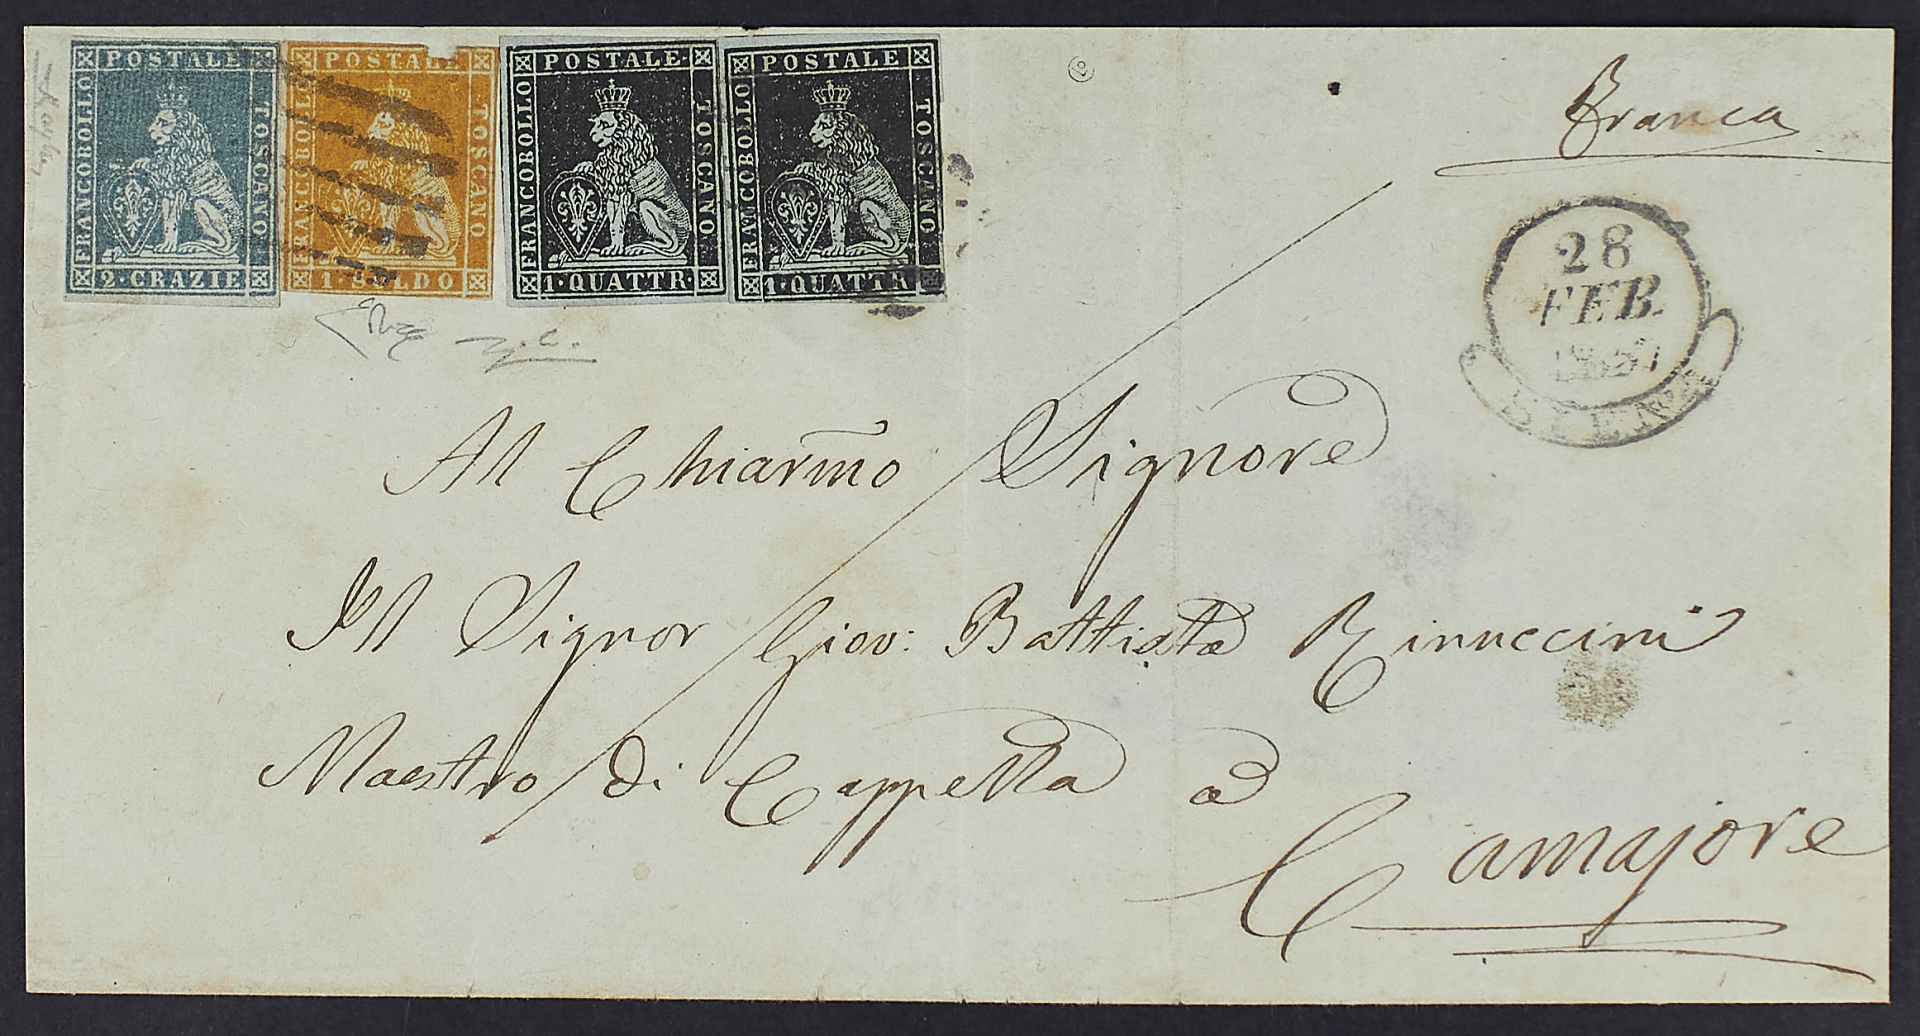 POSTALE
FRANCOBOLLO
TOSCANO
2·CRAZIE
POSTALE
FRANCOBOLLO
TOSCANO
1·SOLDO
POSTALE
FRANCOBOLLO
TOSCANO
1·QUATTR·
POSTALE
FRANCOBOLLO
TOSCANO
1·QUATTR·
Franca
28
FEB.
1857
SIENA
Al Chiarmo Signore
Il Signor Giov: Battista Rinuccini
Maestro di Cappella a
Camajore